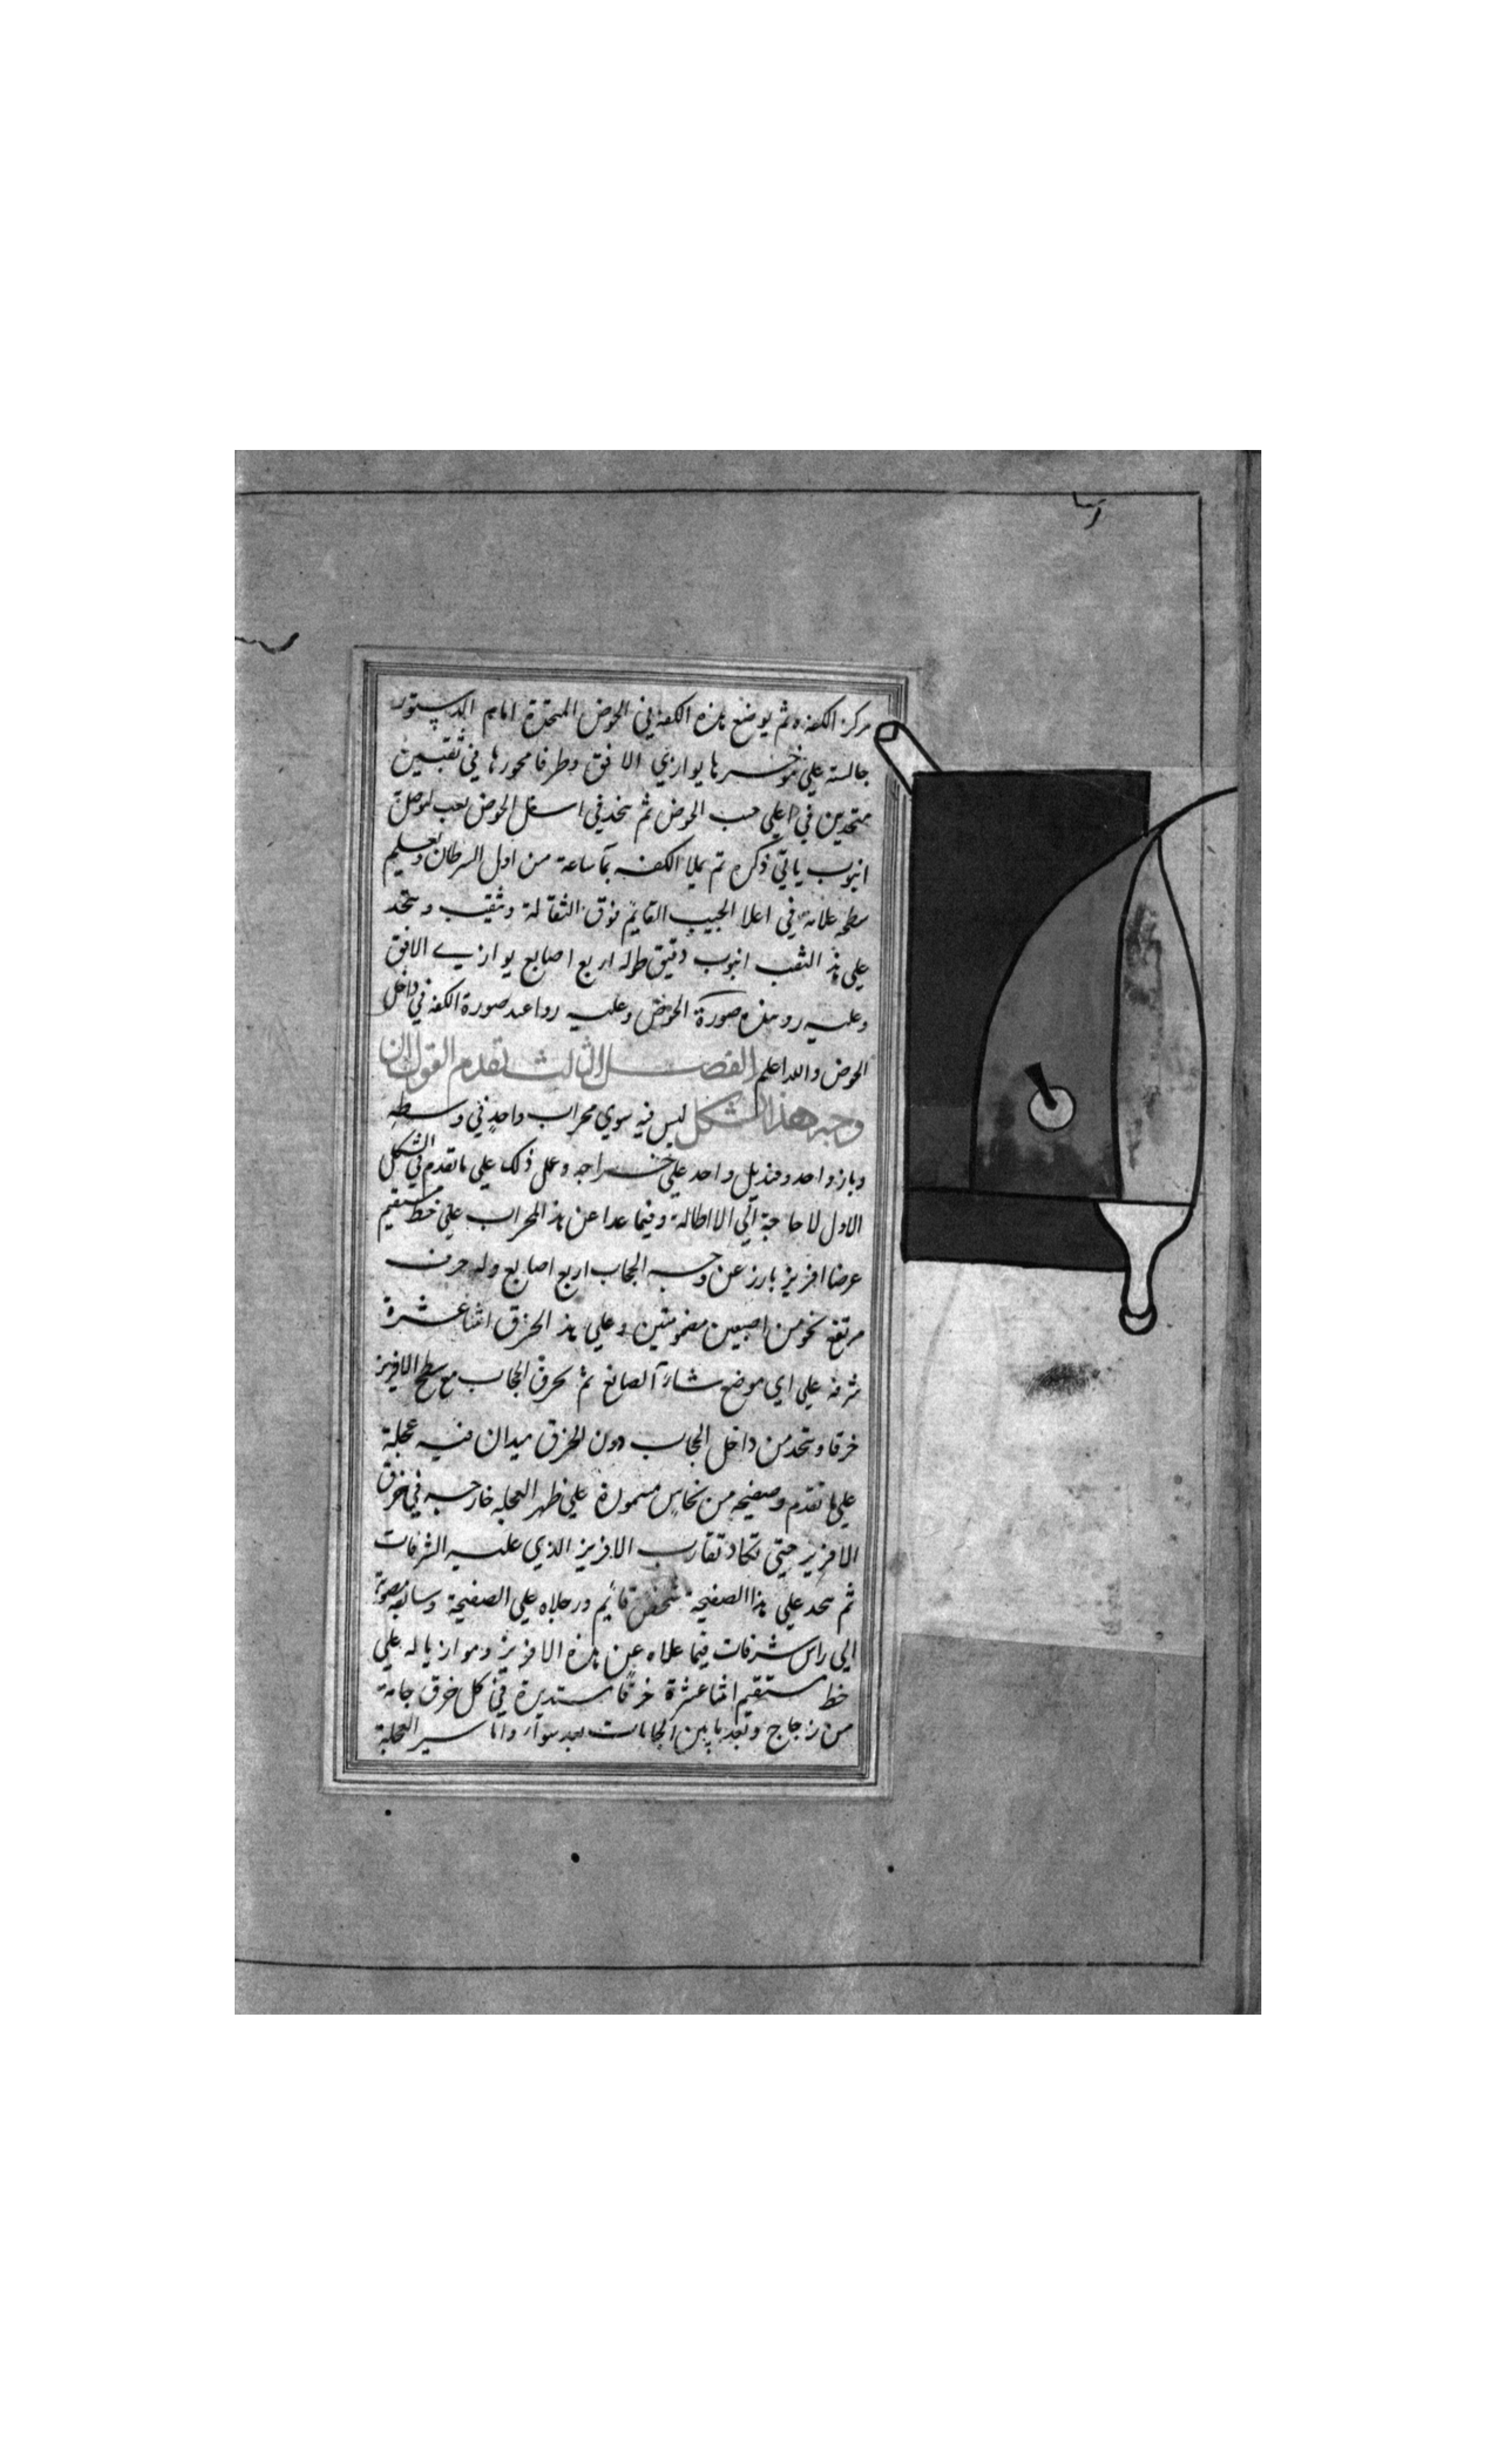 مركز الكفه ثم يوضع هذه الكفه في الحوض المتخذة امام الدستور
جالسة علي مؤخرها يوازي الافق وطرفا محورها في ثقبين
متخذين في اعلي جنب الحوض ثم يتخذ في اسفل الحوض ثقب لموصلة
انبوب ياتي ذكره ثم يملا الكفه بما ساعة من اول السرطان ويعلم
سطحه علامة في اعلا الجيب القايم فوق الثقالة وثقب ويتخذ
علي هذ الثقب انبوب دقيق طوله اربع اصابع يوازي الافق
وعليه ر وهذه صورة الحوض وعليه ر واعد صورة الكفه في داخل
الحوض والله اعلم الفصل الثالث تقدم القول ان
وجه هذا الشكل ليس فيه سوي محراب واحد في وسطه
وباز واحد وقنديل واحد علي خراجه وعمل ذلك علي ما تقدم في الشكل
الاول لا حاجة الي الاطالة وفيما عدا عن هذ المحراب علي خط مستقيم
عرضا افريز بارز عن وجه الحجاب اربع اصابع وله حرف
مرتفع نحو من اصبعين مضمومتين وعلي هذ الحرف اثنا عشرة
شرفه علي اي موضع شاء الصانع ثم يخرق الحجاب مع سطح الافريز
خرقا ويتخذ من داخل الحجاب دون الخرق ميدان فيه عجلة
علي ما تقدم وصفيحه من نحاس مسمورة علي ظهر العجله خارجه في خرق
الافريز حتي تكاد تقارب الافريز الذي عليه الشرفات
ثم يتخذ علي هذا الصفيحة شخص قايم ورجلاه علي الصفيحة وسبابته مصوبة
الي راس شرفات فيما علاه عن هذه الافريز وموازيا له علي
خط مستقيم اثنا عشرة خرقا مستديرة في كل خرق جامة
من زجاج وبعد ما بين الجامات بعد سواء واما سير العجلة